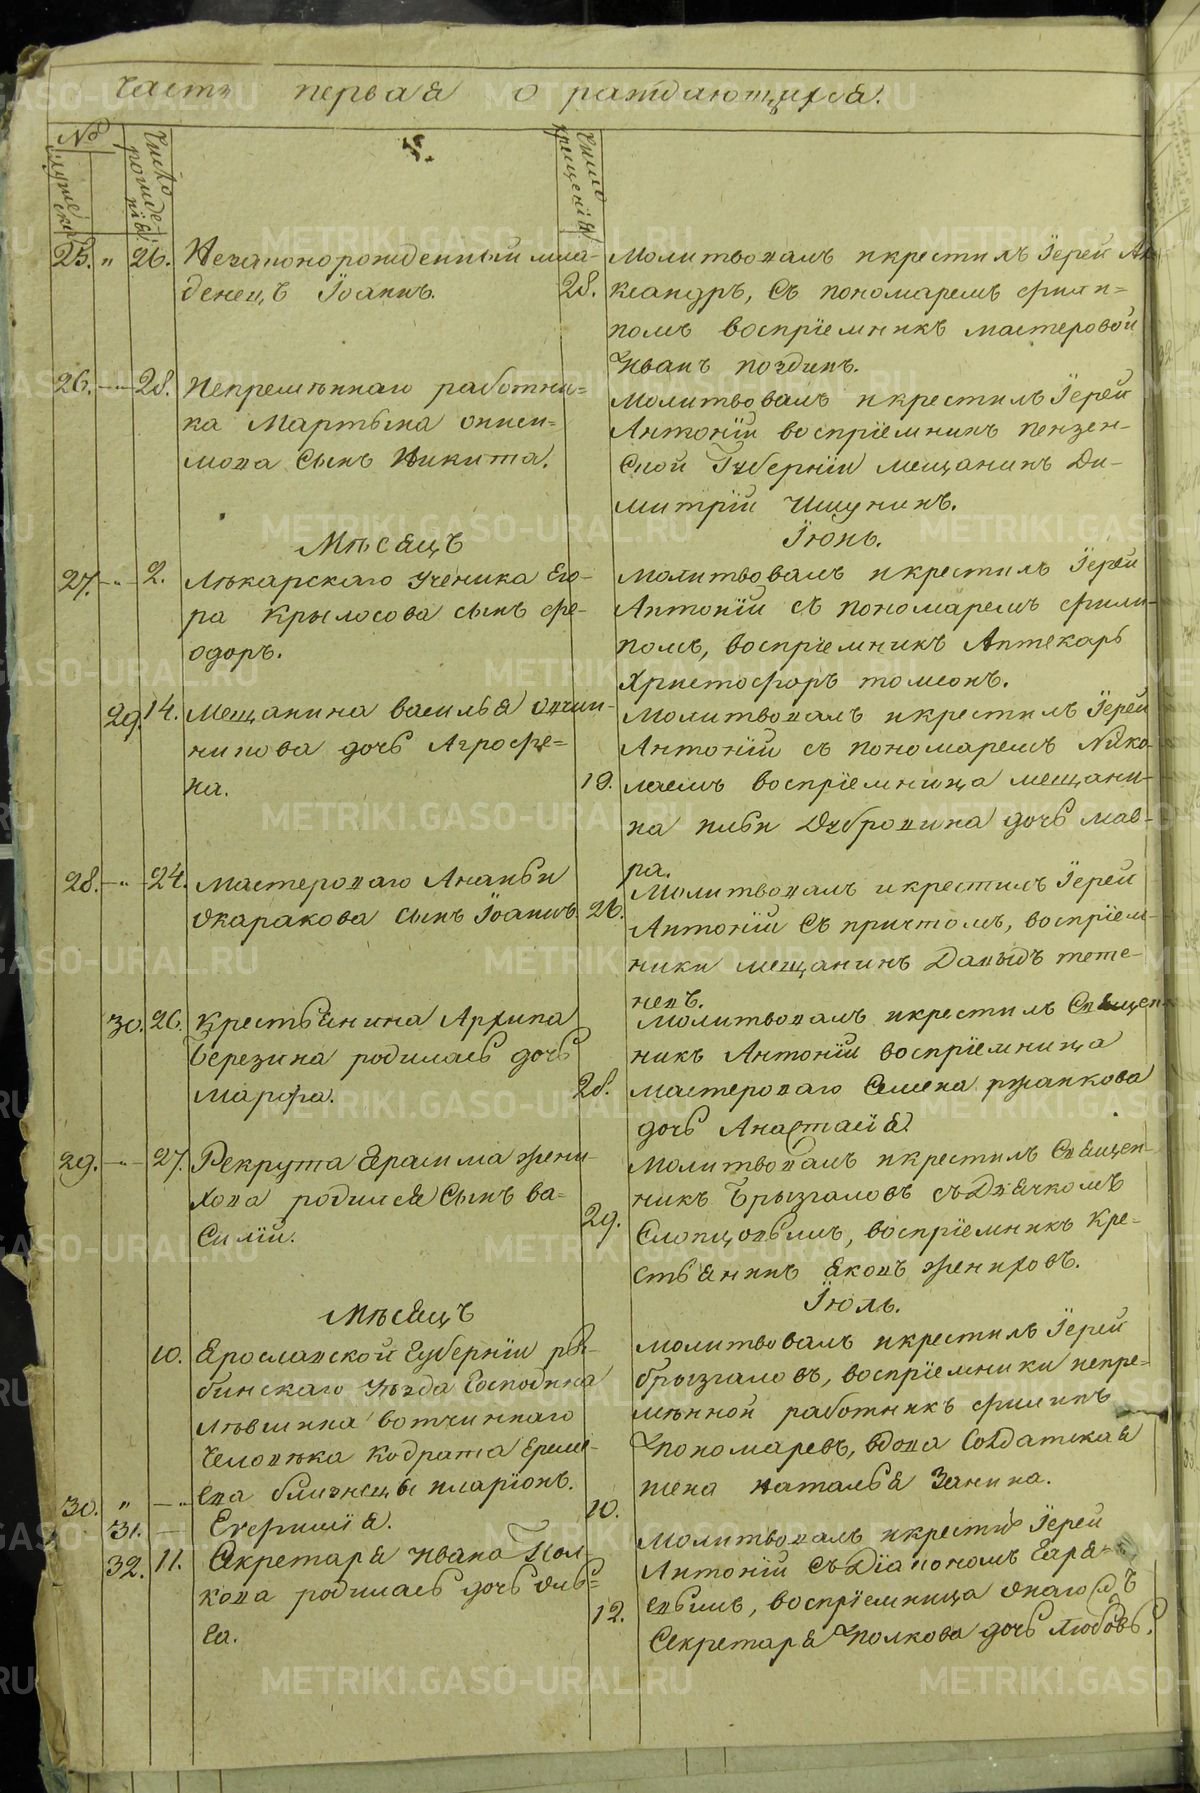 Часть первая о раждающихся.
№
Число рожденія
Число крещенія
25. " 26. Незаконорожденный мла-
денецъ Іоаннъ.
28.
Молитвовалъ и крестилъ Іерей
ксандръ, Съ пономаремъ Фили=
помъ воспріемникъ мастеровой
Иванъ
26. 28. Непремѣннаго работни=
ка Мартына Аниси=
мова Сынъ Никита.
Молитвовалъ и крестилъ Іерей
Антоній воспріемникъ пензен-
Ской Губерніи мещанинъ Ди-
митрій
Мѣсяцъ Іюнь.
27. " 2. Лѣкарскаго Ученика Его-
ра Крылосова сынъ Фе-
одоръ.
Молитвовалъ и крестилъ Іерей
Антоній съ пономаремъ Фили-
помъ, воспріемникъ Аптекарь
Христофоръ
29. 14. Мещанина василья
дочь Агрофе=
на.
19.
Молитвовалъ и крестилъ Іерей
Антоній съ пономаремъ Нико-
лаемъ воспріемница мещани-
на Ильи Дубровина дочь Мав-
ра.
28. " 24. Мастероваго Ананьи
Окаракова сынъ Іоаннъ.
26.
Молитвовалъ и крестилъ Іерей
Антоній Съ причтомъ, воспріем-
ники мещанинъ Давыдъ тете-
невъ.
30. 26. Крестьянина Архипа
Березина родилась дочь
Марфа.
28.
Молитвовалъ и крестилъ Священ-
никъ Антоній воспріемница
мастероваго Семена
дочь Анастасія
29. " 27. Рекрута Ерасима жени-
хова родился Сынъ ва=
Силій.
29.
Молитвовалъ и крестилъ Священ-
никъ Брызгаловъ съ Дьячкомъ
Слопцовымъ, воспріемникъ Кре-
стьянинъ Яковъ
Мѣсяцъ Іюль.
10. Ярославской Губерніи ры-
бинскаго уѣзда Господина
Лѣвшина вотчиннаго
Человѣка Кодрата Ереме-
ева близнецы иларіонъ.
30. "
31. Евфимія.
10.
Молитвовалъ и крестилъ Іерей
брызгаловъ, воспріемники непре-
мѣнной работникъ Филипъ
Пономаревъ, вдова Солдатская
жена Наталья Занина.
32. 11. Секретаря Ивана Пол-
кова родилась дочь Оль=
га.
12.
Молитвовалъ и крести Іерей
Антоній Съ Діакономъ Гаря-
евымъ, воспріемница онаго
Секретаря Полкова дочь Любовь.
METRIKI.GASO-URAL.RU